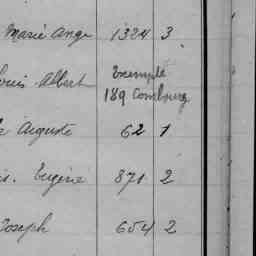 Marie Ange 1324 3
Louis Albert Exempté
189 Combourg
Auguste 62 1
Eugène 871 2
Joseph 654 2